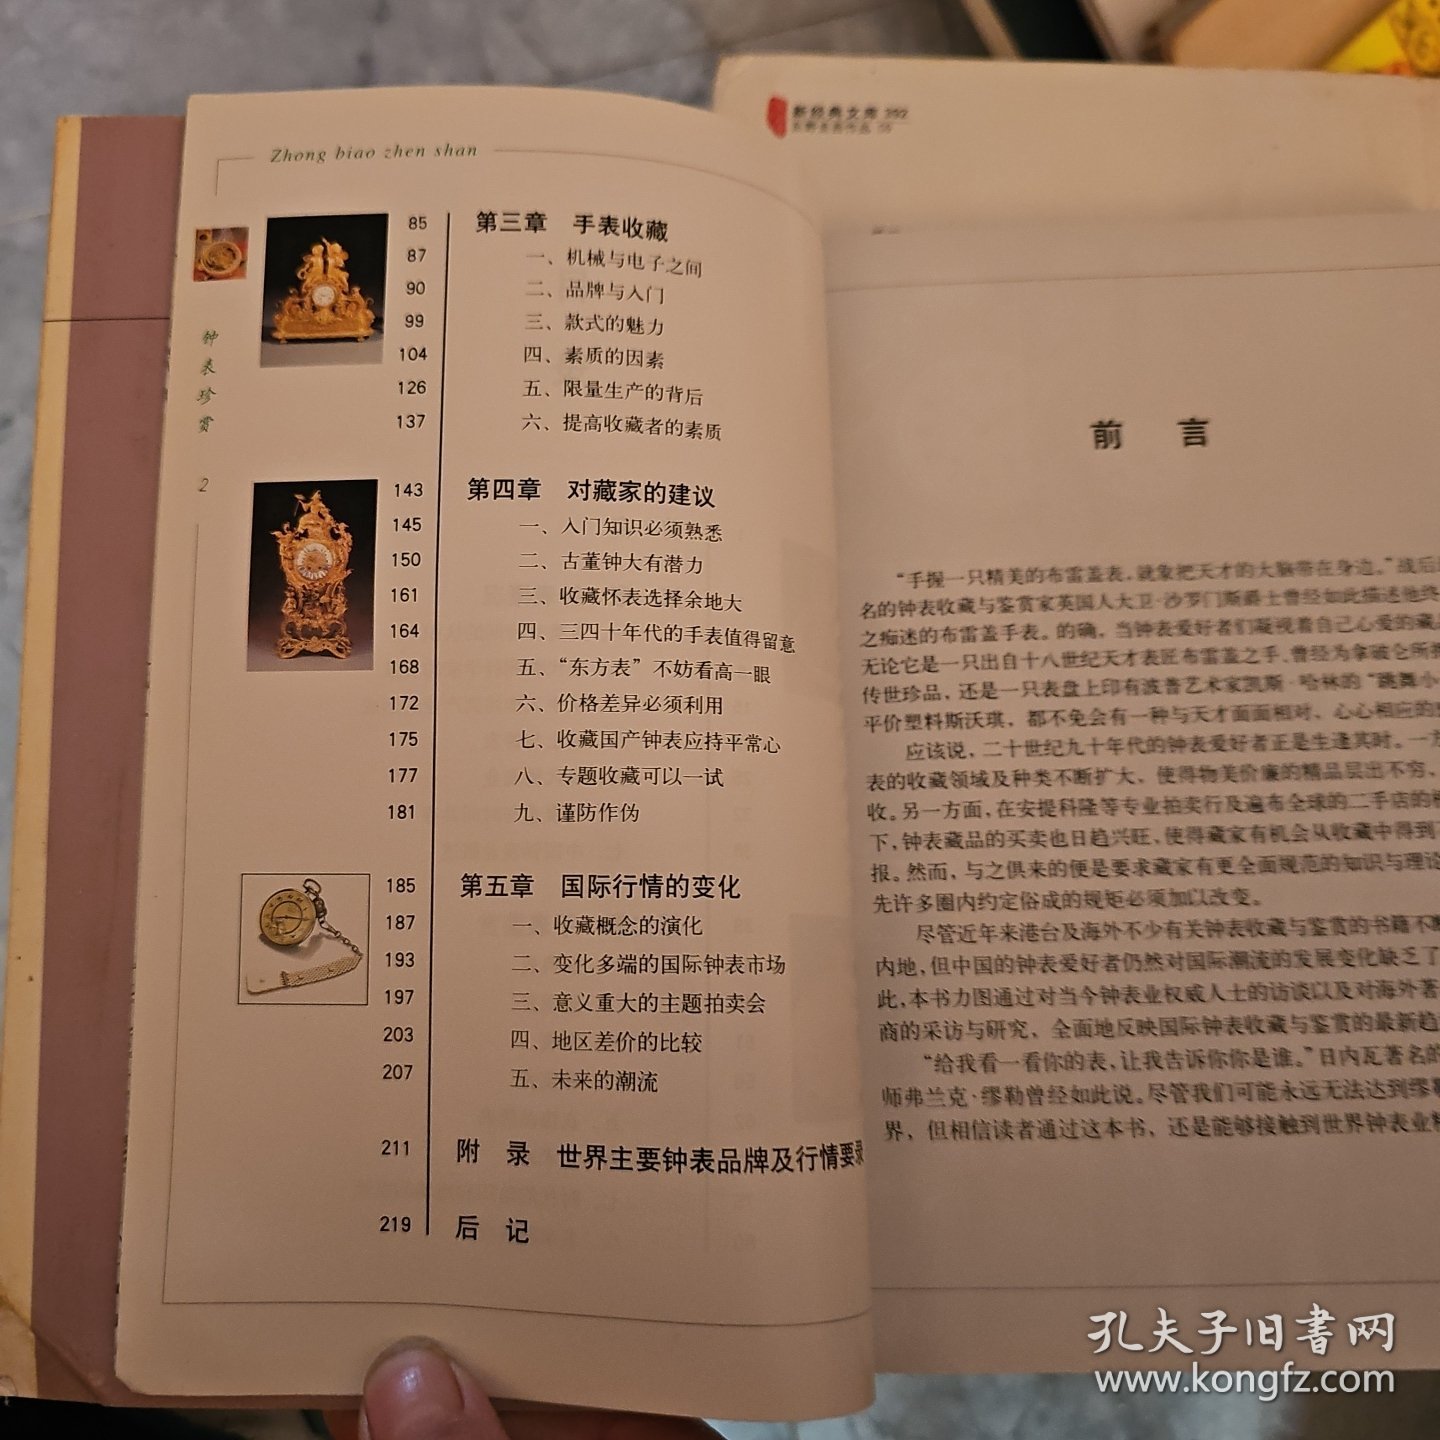 Zhong biao zhen shan
钟表珍赏
2
85 第三章 手表收藏
87 一、机械与电子之间
90 二、品牌与入门
99 三、款式的魅力
104 四、素质的因素
126 五、限量生产的背后
137 六、提高收藏者的素质
143 第四章 对藏家的建议
145 一、入门知识必须熟悉
150 二、古董钟大有潜力
161 三、收藏怀表选择余地大
164 四、三四十年代的手表值得留意
168 五、“东方表”不妨看高一眼
172 六、价格差异必须利用
175 七、收藏国产钟表应持平常心
177 八、专题收藏可以一试
181 九、谨防作伪
185 第五章 国际行情的变化
187 一、收藏概念的演化
193 二、变化多端的国际钟表市场
197 三、意义重大的主题拍卖会
203 四、地区差价的比较
207 五、未来的潮流
211 附 录 世界主要钟表品牌及行情要录
219 后 记
新经典文库 392
前 言
“手握一只精美的布雷盖表，就象把天才的大脑带在身边。”战后
名的钟表收藏与鉴赏家英国人大卫·沙罗门斯爵士曾经如此描述他终
之痴迷的布雷盖手表。的确，当钟表爱好者们凝视着自己心爱的藏
无论它是一只出自十八世纪天才表匠布雷盖之手、曾经为拿破仑所
传世珍品，还是一只表盘上印有波普艺术家凯斯·哈林的“跳舞小
平价塑料斯沃琪，都不免会有一种与天才面面相对、心心相应的
应该说，二十世纪九十年代的钟表爱好者正是生逢其时。一方
表的收藏领域及种类不断扩大，使得物美价廉的精品层出不穷、
收。另一方面，在安提科隆等专业拍卖行及遍布全球的二手店的
下，钟表藏品的买卖也日趋兴旺，使得藏家有机会从收藏中得到
报。然而，与之俱来的便是要求藏家有更全面规范的知识与理论
先许多圈内约定俗成的规矩必须加以改变。
尽管近年来港台及海外不少有关钟表收藏与鉴赏的书籍不断
内地，但中国的钟表爱好者仍然对国际潮流的发展变化缺乏了
此，本书力图通过对当今钟表业权威人士的访谈以及对海外著
商的采访与研究，全面地反映国际钟表收藏与鉴赏的最新趋
“给我看一看你的表，让我告诉你你是谁。”日内瓦著名的
师弗兰克·缪勒曾经如此说。尽管我们可能永远无法达到缪勒
界，但相信读者通过这本书，还是能够接触到世界钟表业
孔夫子旧书网
www.kongfz.com